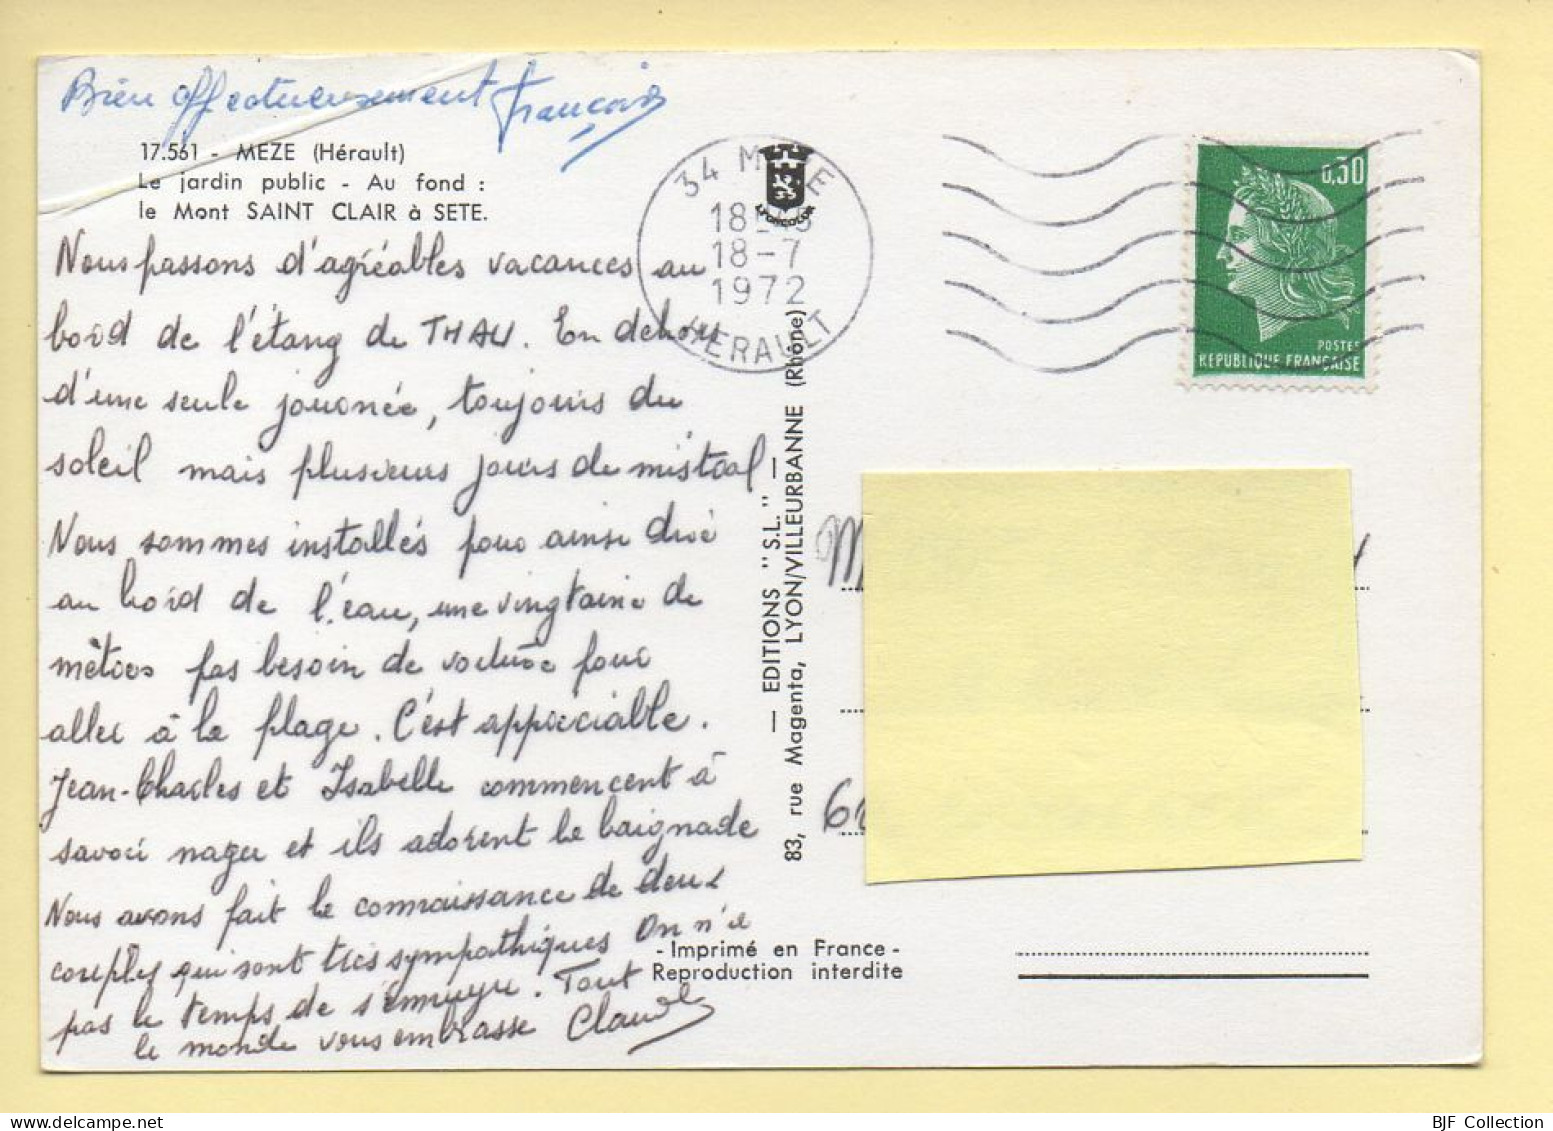 Bien affectueusement François
17.561 - MEZE (Hérault)
Le jardin public - Au fond :
le Mont SAINT CLAIR à SETE.
Nous passons d'agréables vacances au
bord de l'étang de THAU. En dehors
d'une seule journée, toujours du
soleil mais plusieurs jours de mistral
Nous sommes installés pour ainsi dire
au bord de l'eau, une vingtaine de
mètres pas besoin de voiture pour
aller à la plage. C'est appréciable.
Jean-Charles et Isabelle commencent à
savoir nager et ils adorent la baignade
Nous avons fait la connaissance de deux
couples qui sont très sympathiques On n'a
pas le temps de s'ennuyer. Tout
le monde vous embrasse Claude
34 MEZE
18-7
1972
HERAULT
LYONCOLOR
— EDITIONS "S.L." —
83, rue Magenta, LYON/VILLEURBANNE (Rhône)
0,30
POSTES
REPUBLIQUE FRANÇAISE
M
6
- Imprimé en France -
Reproduction interdite
BJF Collection